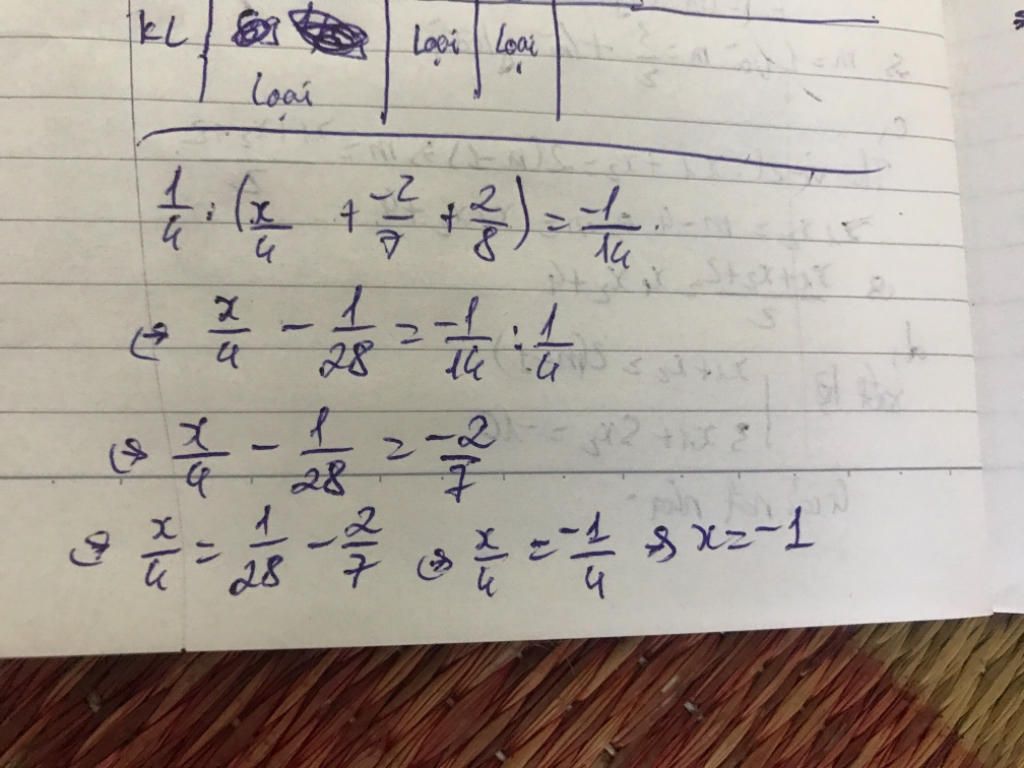 KL Loại Loại
Loại
1/4 : (x/4 + -2/7 + 2/8) = -1/14
⇔ x/4 - 1/28 = -1/14 : 1/4
⇔ x/4 - 1/28 = -2/7
⇔ x/4 = 1/28 - 2/7 ⇔ x/4 = -1/4 ⇔ x = -1